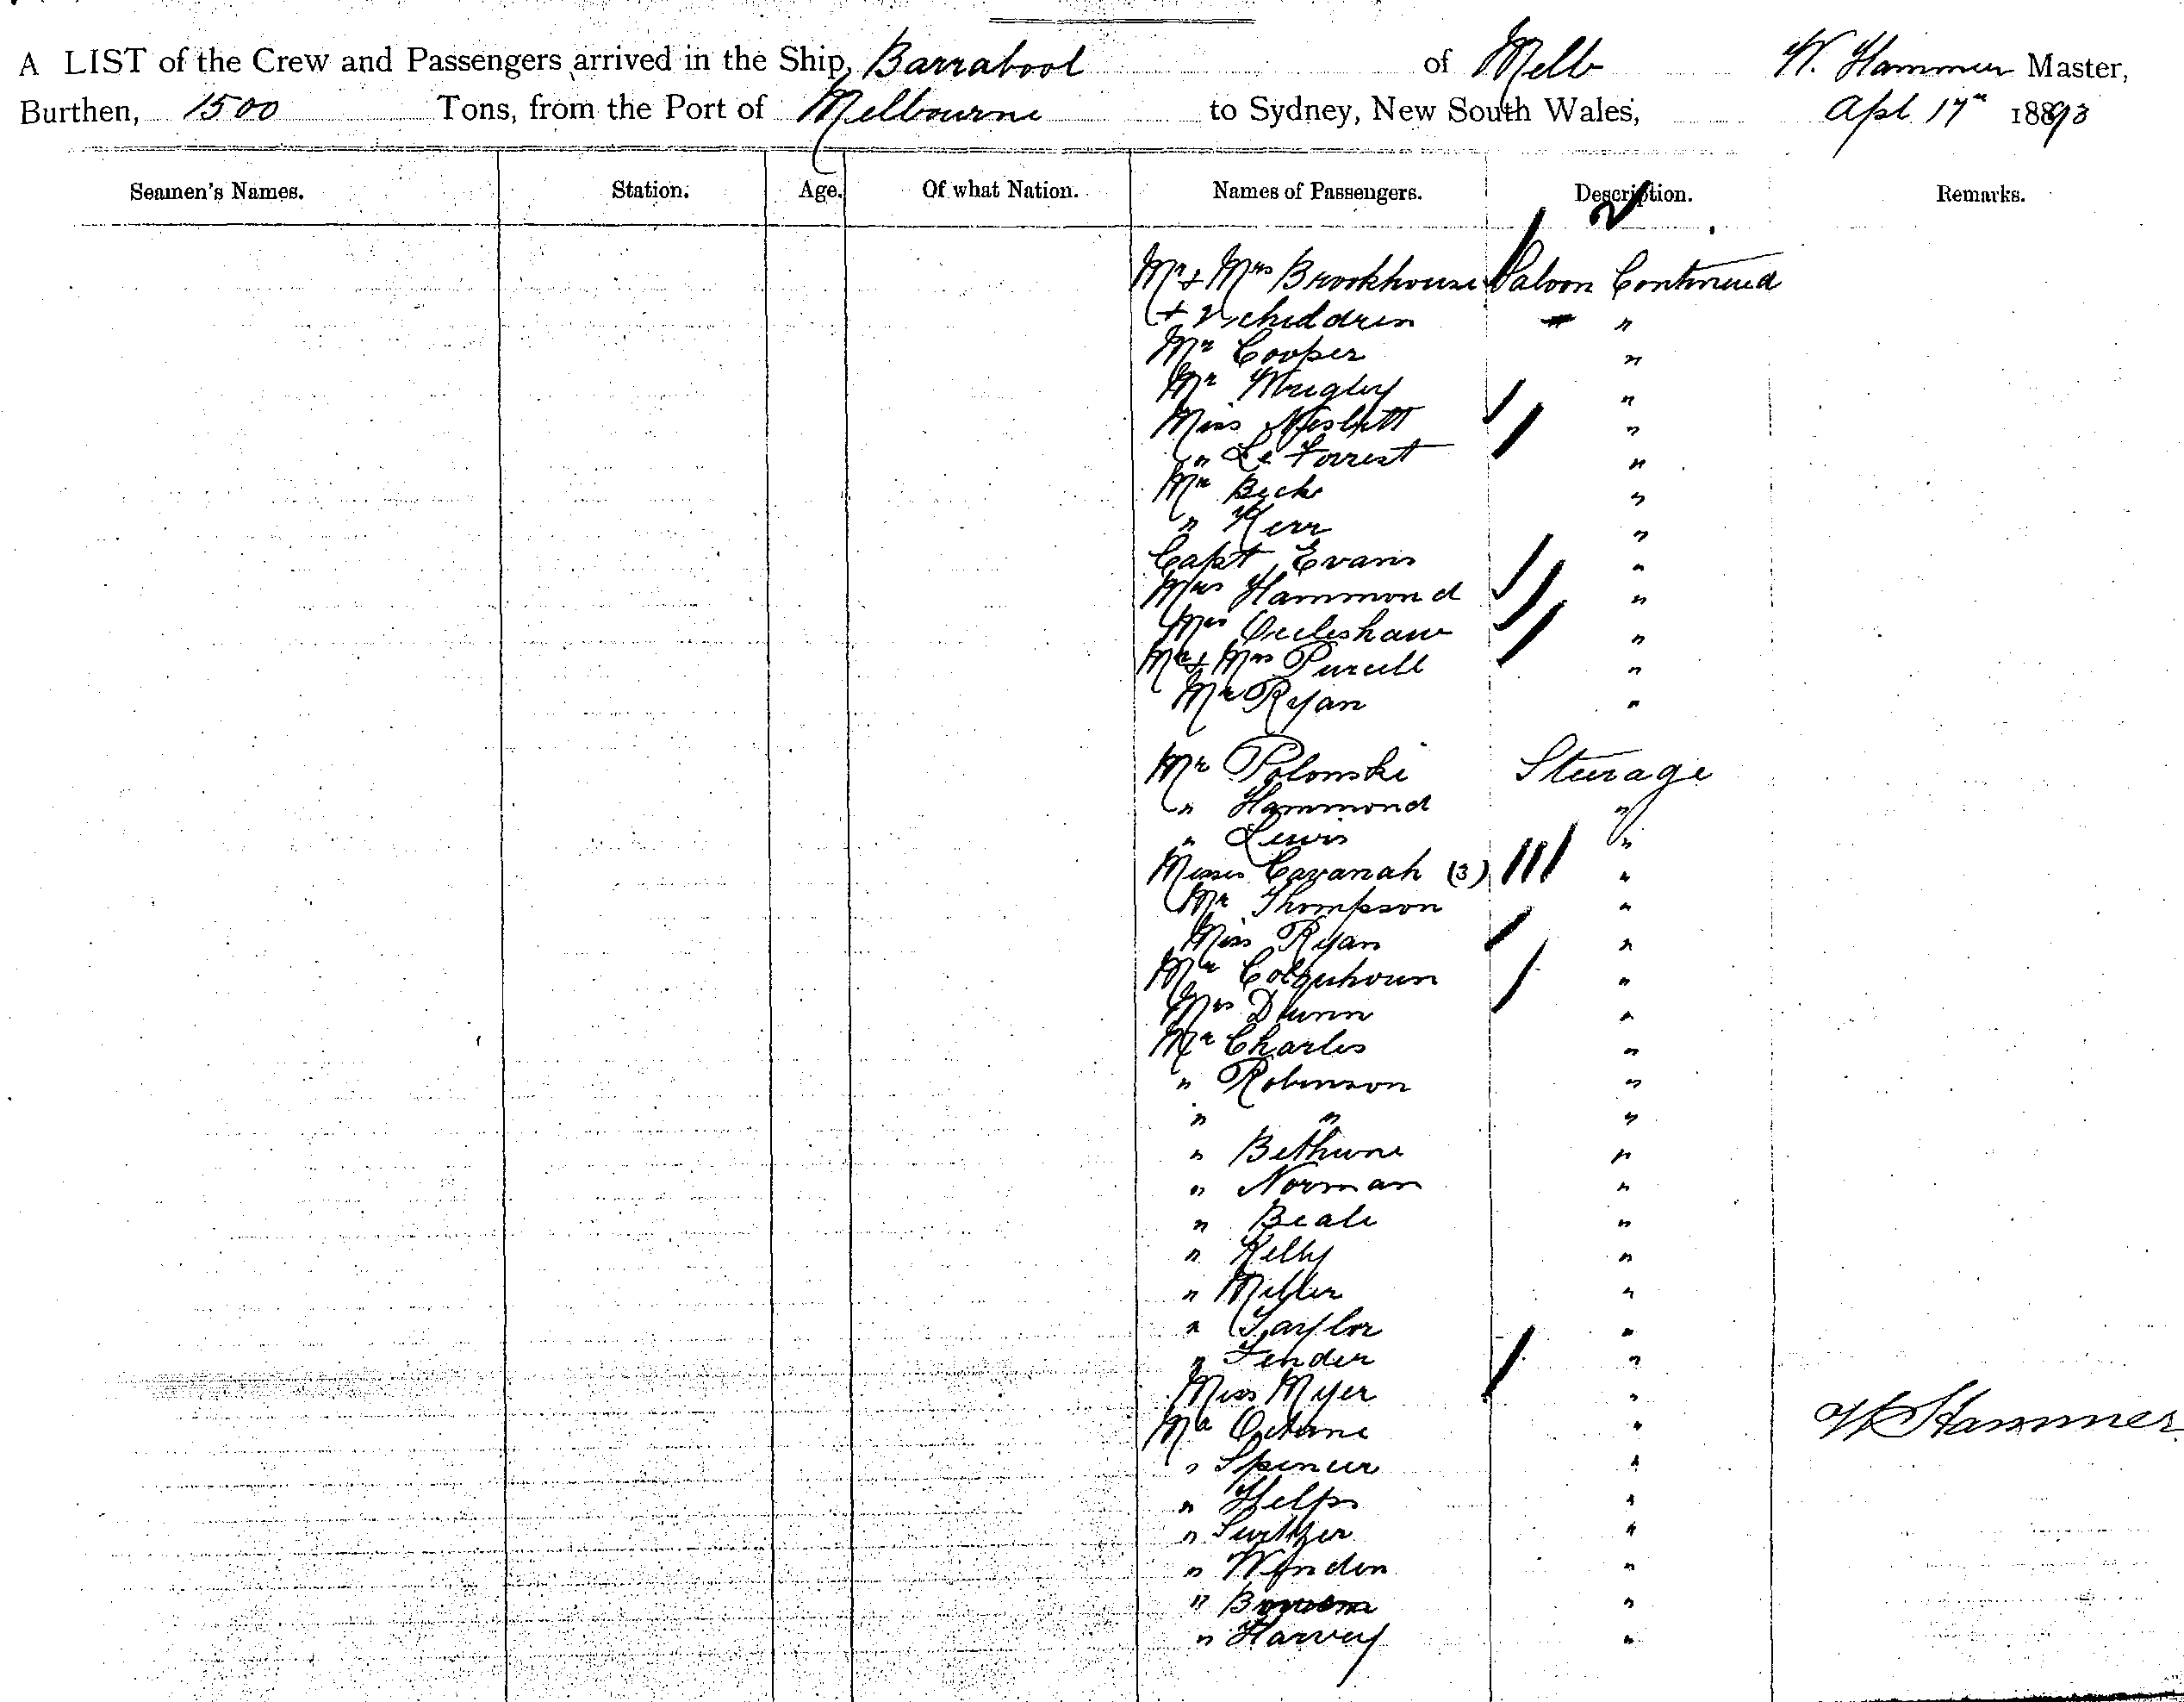 A LIST of the Crew and Passengers arrived in the Ship, Barrabool of Melb W. Hammer Master,
Burthen, 1500 Tons, from the Port of Melbourne to Sydney, New South Wales, Apl 17th 1893
Seamen's Names. Station. Age. Of what Nation. Names of Passengers. Description. Remarks.
Mr & Mrs Brookhouse Saloon Continued
+ 2 children "
Mr Cooper "
Mr Wrigley "
Miss Nesbitt "
" Le Forrest "
Mr Beck "
" Kerr "
Capt Evans "
Mrs Hammond "
Mrs Ocleshaw "
Mr & Mrs Purcell "
Mr Ryan "
Mr Polonski Steerage
" Hammond "
" Lewis "
Misses Cavanah (3) "
Mr Thompson "
Miss Ryan "
Mr Colquhoun "
Mrs Dunn "
Mr Charles "
" Robinson "
" " "
" Bethune "
" Norman "
" Beale "
" Kelly "
" Miller "
" Taylor "
" Fender "
Miss Myer "
Mr "
W Hammer
" Spencer "
" Helps "
" Switzer "
" "
" "
" Harvey "